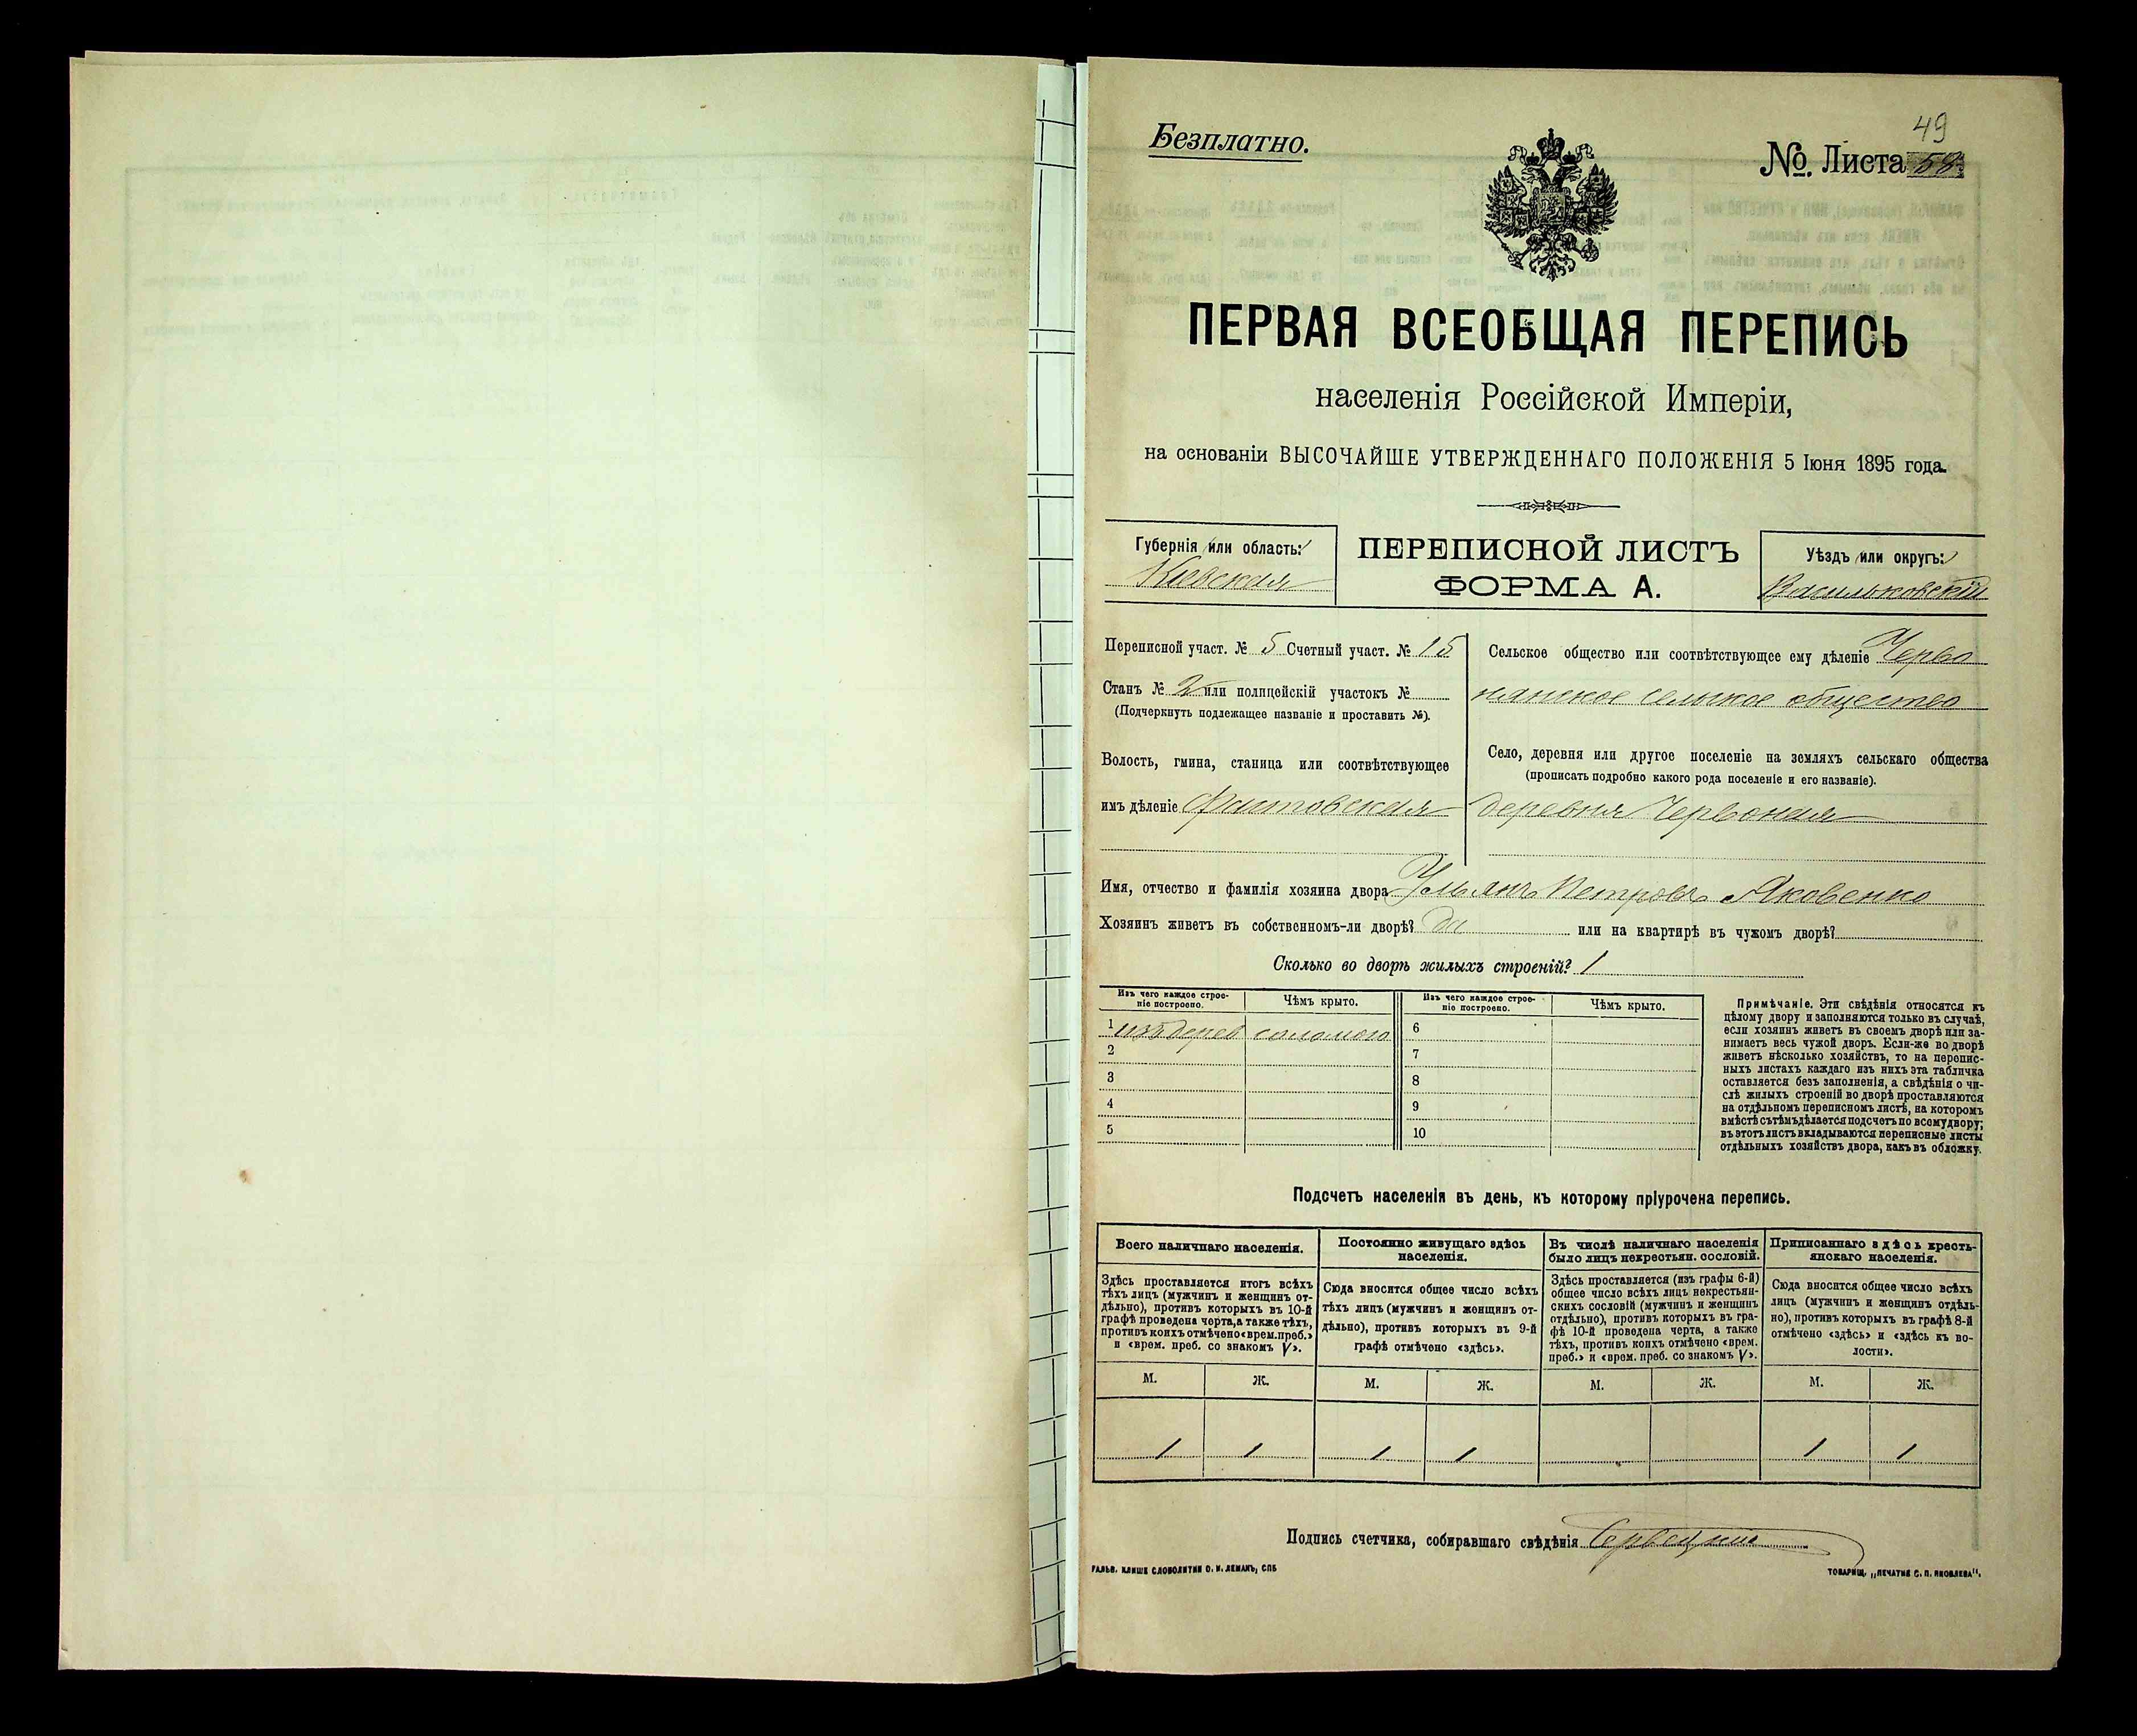 49
Безплатно.
№. Листа 58
ПЕРВАЯ ВСЕОБЩАЯ ПЕРЕПИСЬ
населенія Россійской Имперіи,
на основаніи ВЫСОЧАЙШЕ УТВЕРЖДЕННАГО ПОЛОЖЕНІЯ 5 Іюня 1895 года.
Губернія или область:
Кіевская
ПЕРЕПИСНОЙ ЛИСТЪ
ФОРМА А.
Уѣздъ или округъ:
Васильковскій
Переписной участ. № 5 Счетный участ. № 15
Станъ № 2 или полицейскій участокъ №
(Подчеркнуть подлежащее названіе и проставить №).
Волость, гмина, станица или соотвѣтствующее
имъ дѣленіе Фастовская
Сельское общество или соотвѣтствующее ему дѣленіе Черво
нянское сельское общество
Село, деревня или другое поселеніе на земляхъ сельскаго общества
(прописать подробно какого рода поселеніе и его названіе).
деревня Червоная
Имя, отчество и фамилія хозяина двора Ульянъ Петровъ Яковенко
Хозяинъ живетъ въ собственномъ-ли дворѣ? да или на квартирѣ въ чужомъ дворѣ?
Сколько во дворѣ жилыхъ строеній? 1
Изъ чего каждое строе-
ніе построено.
Чѣмъ крыто.
Изъ чего каждое строе-
ніе построено.
Чѣмъ крыто.
1 изъ дерев соломою
2
3
4
5
6
7
8
9
10
Примѣчаніе. Эти свѣдѣнія относятся къ
цѣлому двору и заполняются только въ случаѣ,
если хозяинъ живетъ въ своемъ дворѣ или за-
нимаетъ весь чужой дворъ. Если-же во дворѣ
живетъ нѣсколько хозяйствъ, то на перепис-
ныхъ листахъ каждаго изъ нихъ эта табличка
оставляется безъ заполненія, а свѣдѣнія о чи-
слѣ жилыхъ строеній во дворѣ проставляются
на отдѣльномъ переписномъ листѣ, на которомъ
вмѣстѣ съ тѣмъ дѣлается подсчетъ по всему двору;
въ этотъ листъ вкладываются переписные листы
отдѣльныхъ хозяйствъ двора, какъ въ обложку.
Подсчетъ населенія въ день, къ которому пріурочена перепись.
Всего наличнаго населенія.
Здѣсь проставляется итогъ всѣхъ
тѣхъ лицъ (мужчинъ и женщинъ от-
дѣльно), противъ которыхъ въ 10-й
графѣ проведена черта, а также тѣхъ,
противъ коихъ отмѣчено «врем. преб.»
и «врем. преб. со знакомъ V».
Постоянно живущаго здѣсь
населенія.
Сюда вносится общее число всѣхъ
тѣхъ лицъ (мужчинъ и женщинъ от-
дѣльно), противъ которыхъ въ 9-й
графѣ отмѣчено «здѣсь».
Въ числѣ наличнаго населенія
было лицъ некрестьян. сословій.
Здѣсь проставляется (изъ графы 6-й)
общее число всѣхъ лицъ некрестьян-
скихъ сословій (мужчинъ и женщинъ
отдѣльно), противъ которыхъ въ гра-
фѣ 10-й проведена черта, а также
тѣхъ, противъ коихъ отмѣчено «врем.
преб.» и «врем. преб. со знакомъ V».
Приписаннаго здѣсь кресть-
янскаго населенія.
Сюда вносится общее число всѣхъ
лицъ (мужчинъ и женщинъ отдѣль-
но), противъ которыхъ въ графѣ 8-й
отмѣчено «здѣсь» и «здѣсь къ во-
лости».
М. Ж. М. Ж. М. Ж. М. Ж.
1 1 1 1 1 1
Подпись счетчика, собиравшаго свѣдѣнія
ГАЛЬВ. КЛИШЕ СЛОВОЛИТНИ О. И. ЛЕМАНЪ, СПБ
ТОВАРИЩ. „ПЕЧАТНЯ С. П. ЯКОВЛЕВА".